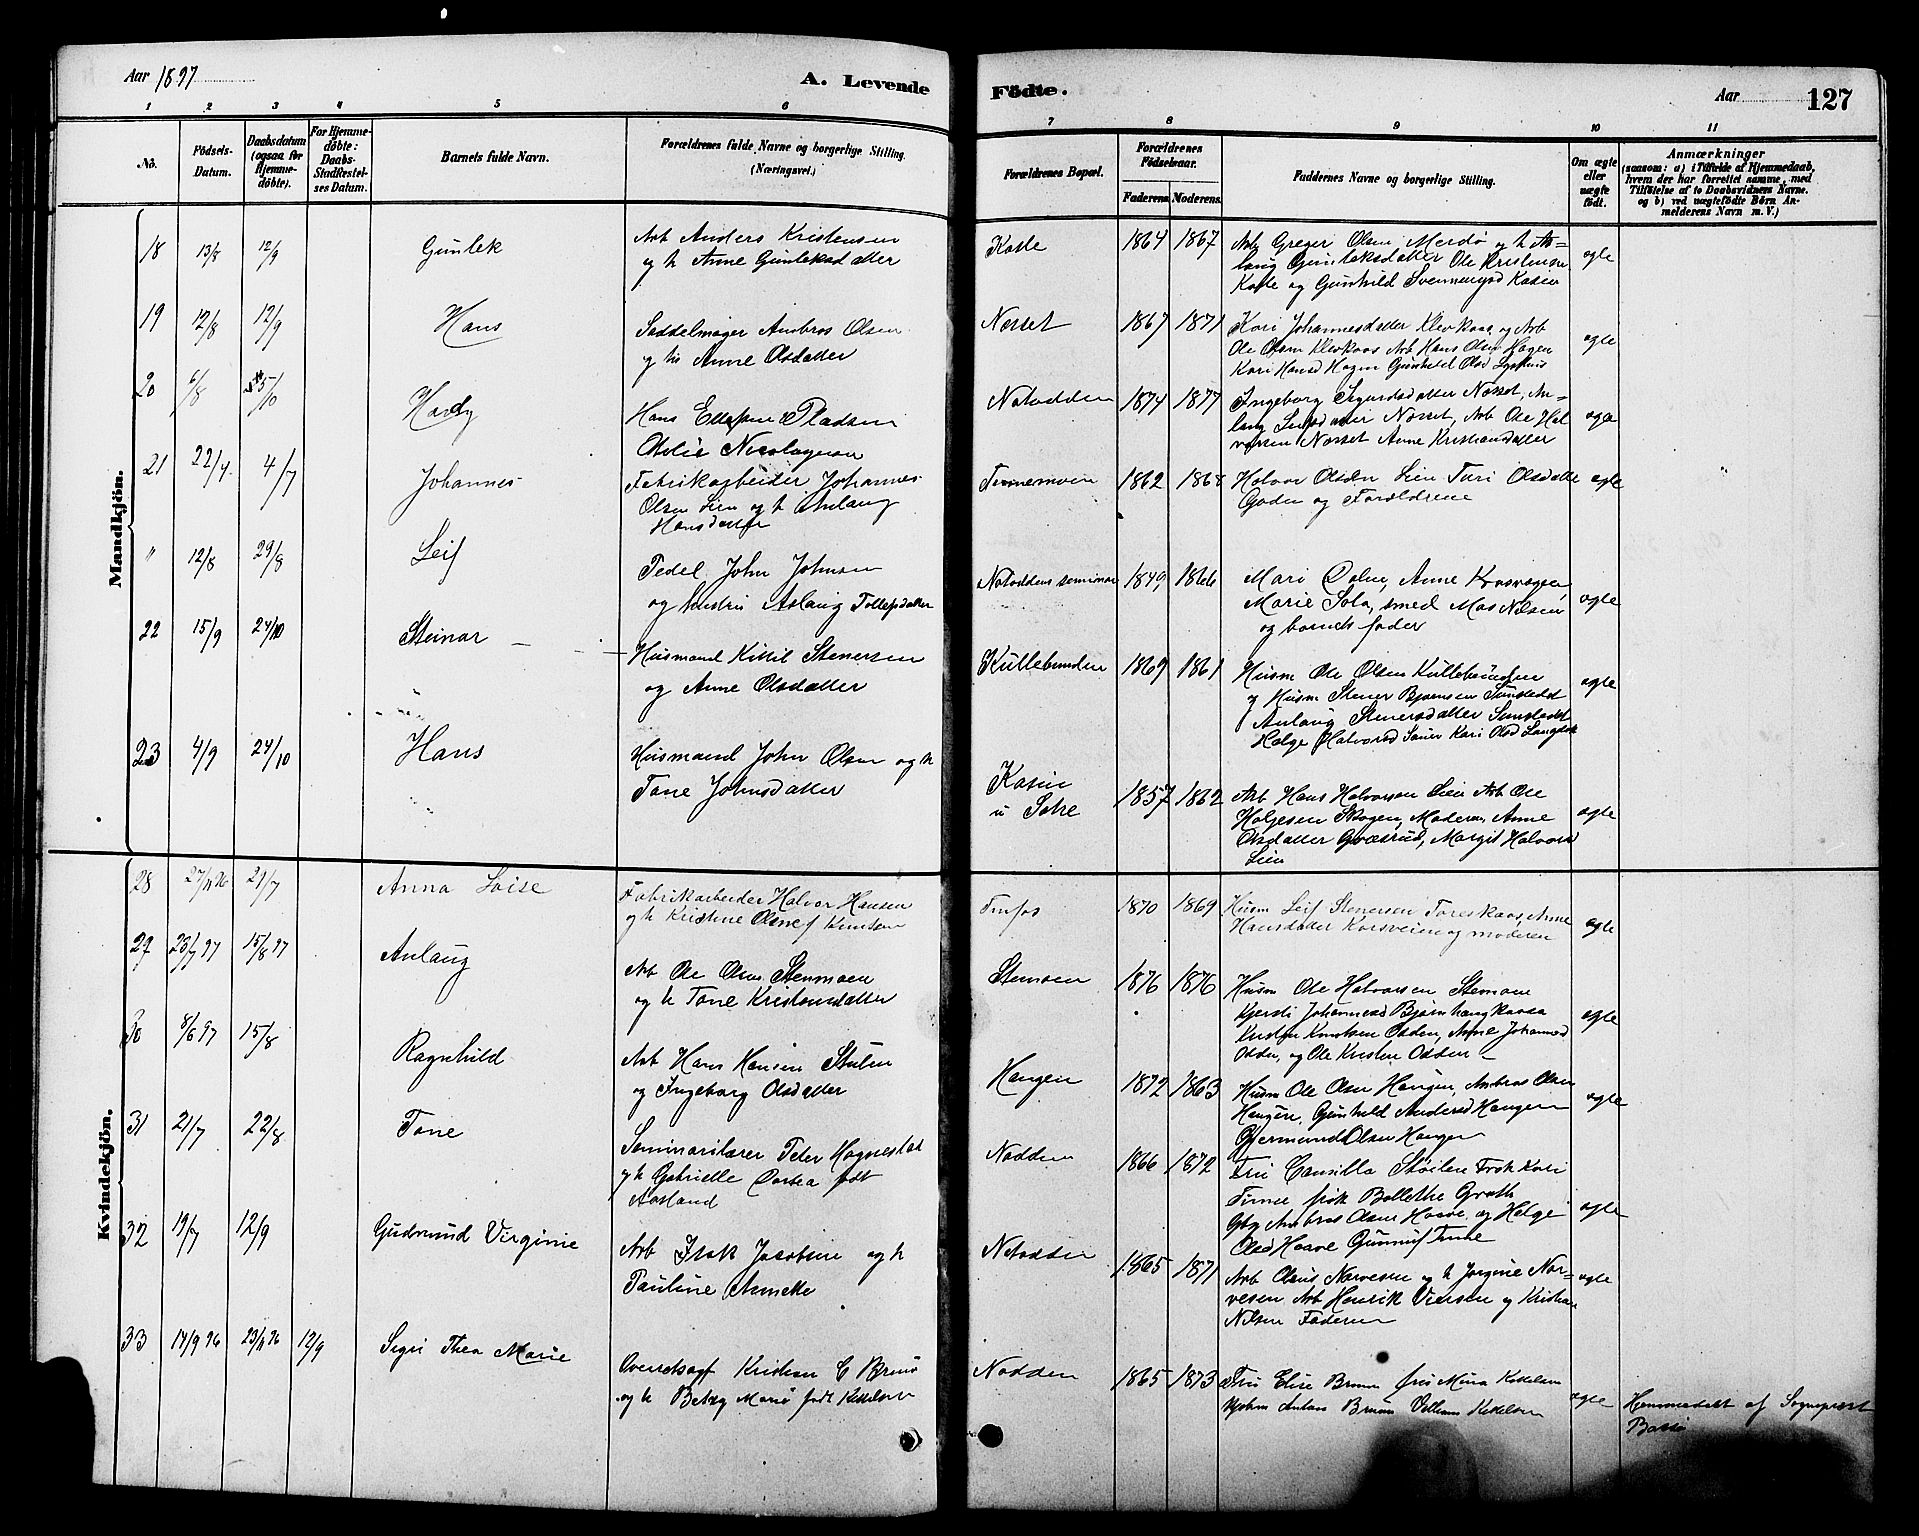 Aar 1897
A. Levende
Fødte.
Aar 127
1 2 3 4 5 6 7 8 9 10 11
No.
Fødsels-
Datum.
Daabsdatum
(ogsaa for
Hjemme-
døbte).
For Hjemme-
døbte:
Daabs-
Stadfæstel-
ses Datum.
Barnets fulde Navn.
Forældrenes fulde Navne og borgerlige Stilling.
(Næringsvei.)
Forældrenes Bopæl.
Forældrenes
Fødselsaar.
Faderens. Moderens.
Faddernes Navne og borgerlige Stilling.
Om ægte
eller
uægte
født.
Anmærkninger
(saasom: a) i Tilfælde af Hjemmedaab,
hvem der har forrettet samme, med
Tilføielse af to Daabsvidners Navne.
og b) ved uægtefødte Børn An-
melderens Navn m. V.)
Mandkjön.
18 13/8 12/9 Gunlek
Arb Anders Kristensen
og h Anne Gunleksdatter
1864 1867
Arb Greger Olsen Merdø og h As-
laug Gunleksdatter Ole Kristensen
og Gunhild
ægte
19 12/8 12/9 Hans
Saddelmager Ambros Olsen
og h Anne Olsdatter
Nesset 1867 1871
Kari Johannesdatter og Arb
Ole Olsen Arb Hans Olsen Hagen
Kari Hansd Hagen Gunhild Olsd
ægte
20 6/8 /10
Hans Ellefsen Pladsen
Notodden 1874 1877
Ingeborg Sigurdsdatter Nesset, As-
laug Nesset, Arb Ole Hal
vorsen Nesset Anne Kristiansdatter
ægte
21 22/4 4/7 Johannes
Fabrikarbeider Johannes
Olsen Lien og h Aslaug
Hansdatter
Tinnemoen 1862 1868
Halvor Olsen Lien Turi Olsdatter
og Forældrene
ægte
" 12/8 29/8 Leif
Pedel John Johnsen
og hustru Aslaug Tollefsdatter
Notoddens seminar 1849 1866
Mari Dalen, Anne
Marie Sola, smed Mas Nilsen
og barnets fader
ægte
22 15/9 24/10 Steinar
Husmand Kittil Stenersen
og Anne Olsdatter
Kullebunden 1869 1861
Husm Ole Olsen Kullebunden
og Husm Stener Bjørnsen
Aslaug Stenersdatter
Helge Halvorsd Kari Olsd
ægte
23 4/9 24/10 Hans
Husmand John Olsen og h
Tone Johnsdatter
Kasin
u
1857 1862
Arb Hans Halvorsen Lien Arb Ole
Helgesen Skogen, Moderen, Anne
Olsdatter Margit Halvorsd
Lien
ægte
Kvindekjön.
28 27/11 96 21/7 Anna Loise
Fabrikarbeider Halvor Hansen
og h Kristine Olsen f Knutsen
Tinfos 1870 1869
Husm Leif Stenersen Anne
Hansdatter Korsveien og moderen
ægte
29 23/7 97 15/8 97 Aslaug
Arb Ole Olsen Stenmoen
og h Tone Kristensdatter
Stemoen 1876 1876
Husm Ole Halvorsen Stemoen
Kjersti Johannesd
Knutsen Odden, Anne Johannesd
Odden, og Ole Kristen Odden
ægte
30 8/6 97 15/8 Ragnhild
Arb Hans Hansen
og Ingeborg Olsdatter
Haugen 1872 1863
Husm Ole Olsen Haugen, Ambros Olsen
Haugen, Gunhild Andersd Haugen
Gjermund Olsen Haugen
ægte
31 21/7 22/8 Tone
Seminarilærer Peter Hognestad
og h Gabrielle Dortea født
Aasland
Nodden 1866 1872
Fru Støilen Frøk Kari
Tinne frøk Bollethe Groth
Ambros Olsen og Helge
Olsd Gunnuf Tinne
ægte
32 19/7 12/9 Gudmund Virginie
Arb Isak Jacobsen og h
Pauline Annette
Notodden 1865 1871
Arb Olaus Norvesen og h Jorgine Nor-
vesen Arb Henrik Viersen og Kristian
Nilsen Faderen
ægte
33 14/9 96 23/11 96 12/9 Sigri Thea Marie
Overretssagf Kristian C Bruun
og h Betzy Marie født Kittelsen
Nodden 1865 1873
Fru Elise Bruun frøk Mina Kittelsen
Anton Bruun Vilhelm Kittelsen
ægte
Hjemmedøbt af Sogneprest